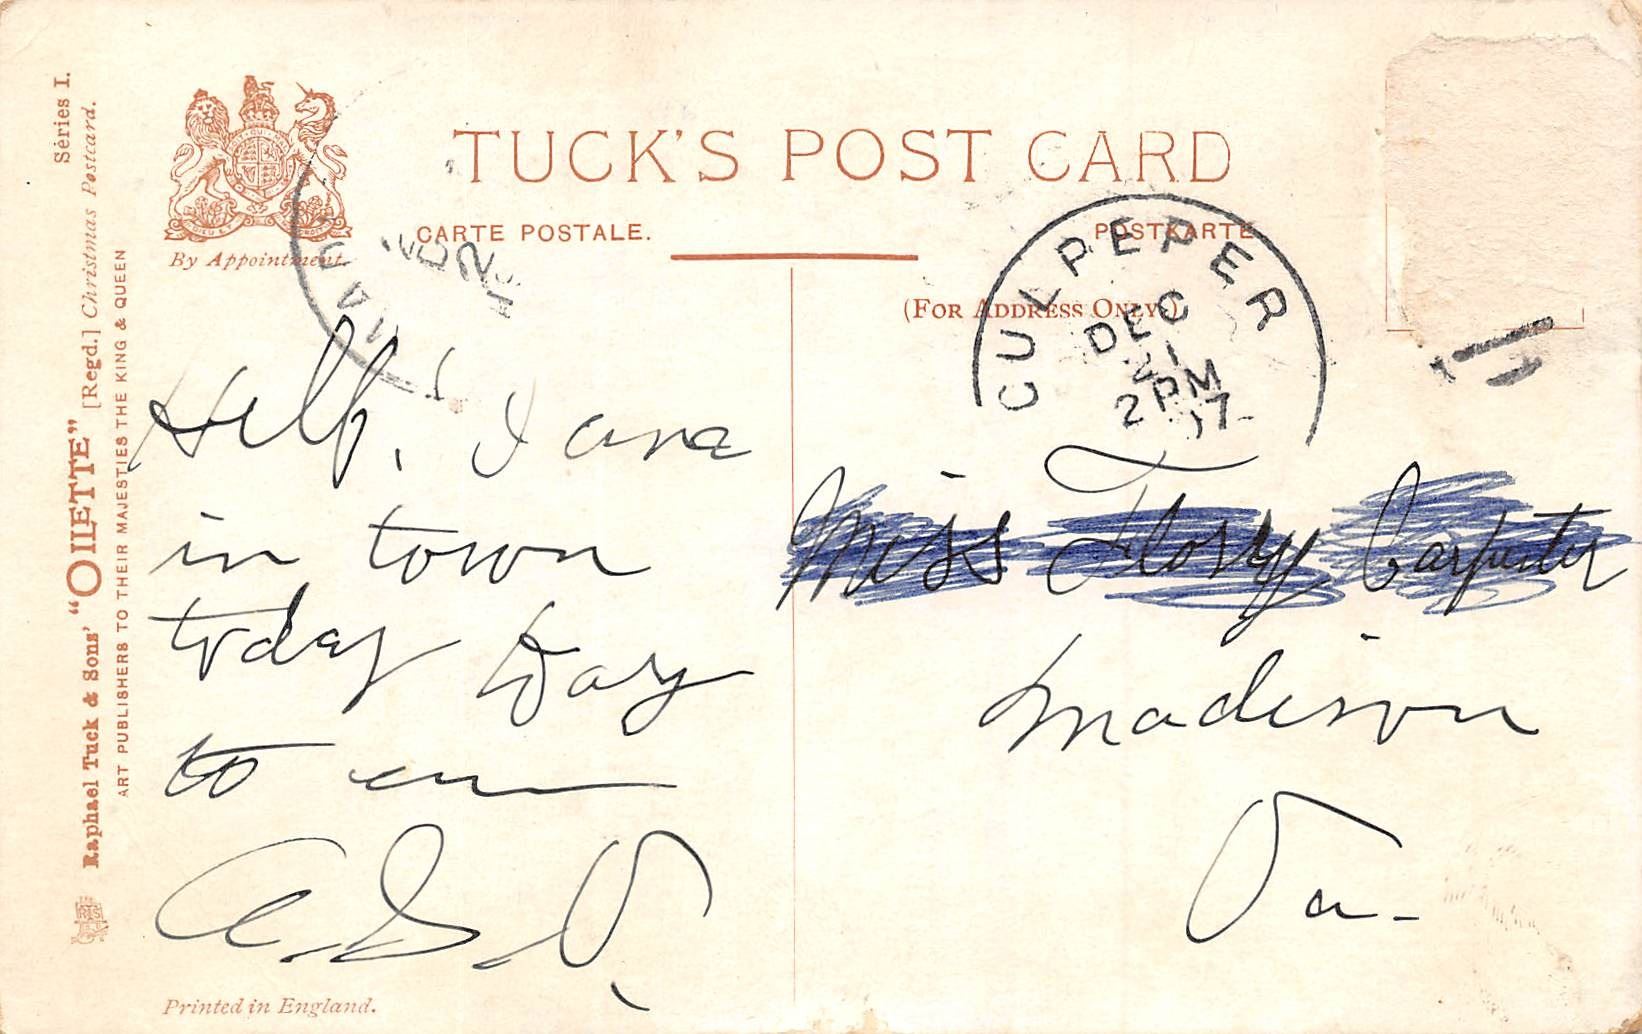 Séries I.
Raphael Tuck & Sons' "OILETTE" [Regd.] Christmas Postcard.
ART PUBLISHERS TO THEIR MAJESTIES THE KING & QUEEN
By Appointment.
TUCK'S POST CARD
CARTE POSTALE.
POSTKARTE
(FOR ADDRESS ONLY.)
CULPEPER
DEC
21
2 PM
07
Hello! I am
in town
today
to
Miss Flory Carpenter
Madison
Va-
Printed in England.